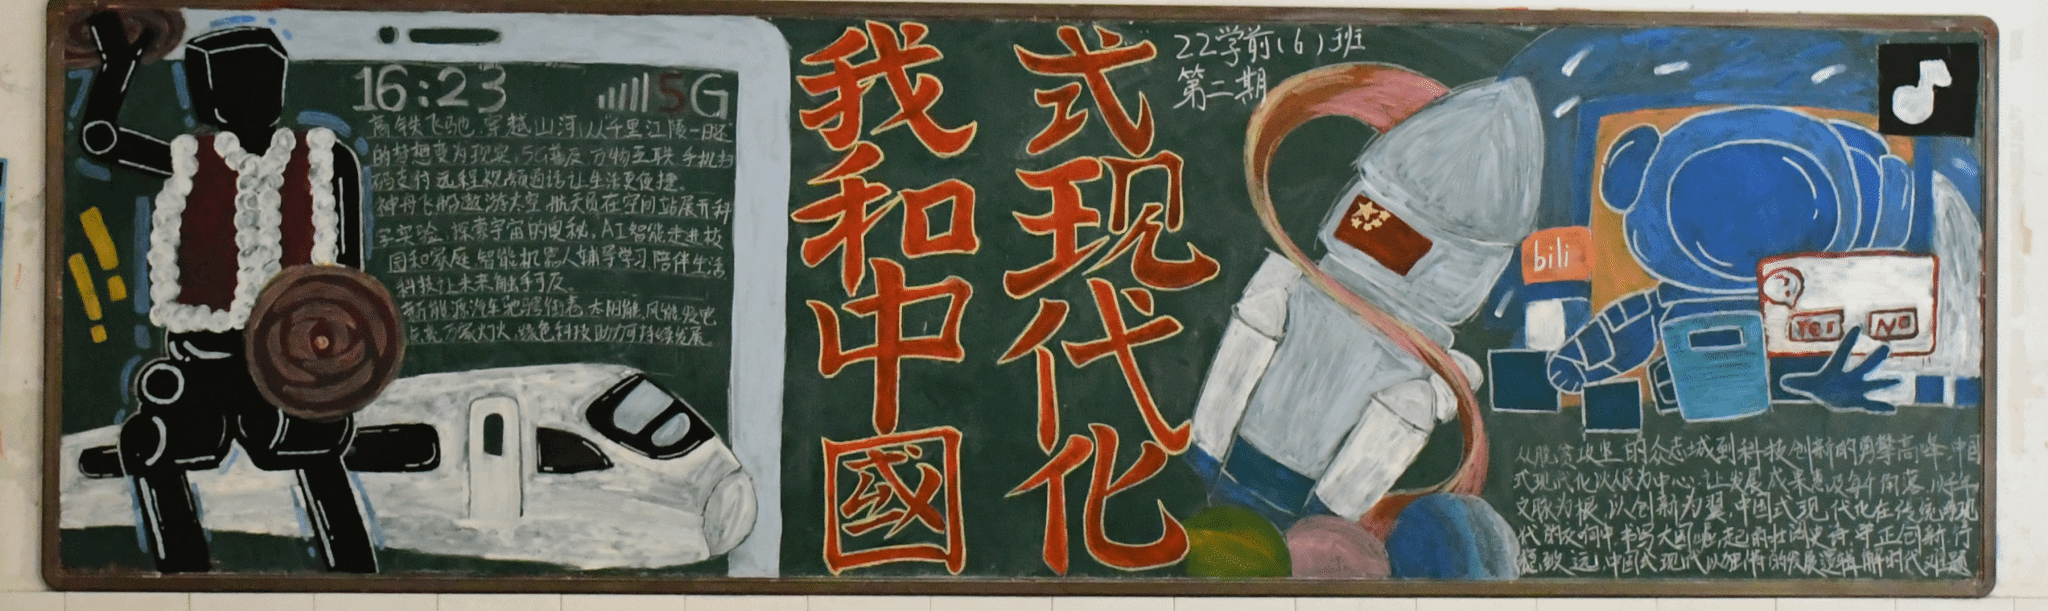 16:23
5G
高铁飞驰,穿越山河,从千里江陵一日还
的梦想变为现实,5G普及,万物互联,手机扫
码支付远程视频通话让生活更便捷。
神舟飞船遨游太空,航天员在空间站展开科
学实验,探索宇宙的奥秘,AI智能走进校
园和家庭,智能机器人辅导学习,陪伴生活,
科技让未来触手可及。
新能源汽车驰骋街巷,太阳能,风能发电
点亮万家灯火,绿色科技助力可持续发展。
我和中國
式现代化
22学前(6)班
第二期
bili
Yes No
从脱贫攻坚的众志成城到科技创新的勇攀高峰,中国
式现代化以人民为中心,让发展成果惠及每个角落,以千年
文脉为根,以创新为翼,中国式现代化在传统与现
代的交响中,书写大国崛起的壮阔史诗,守正创新,行
稳致远,中国式现代以独特的发展逻辑解时代难题